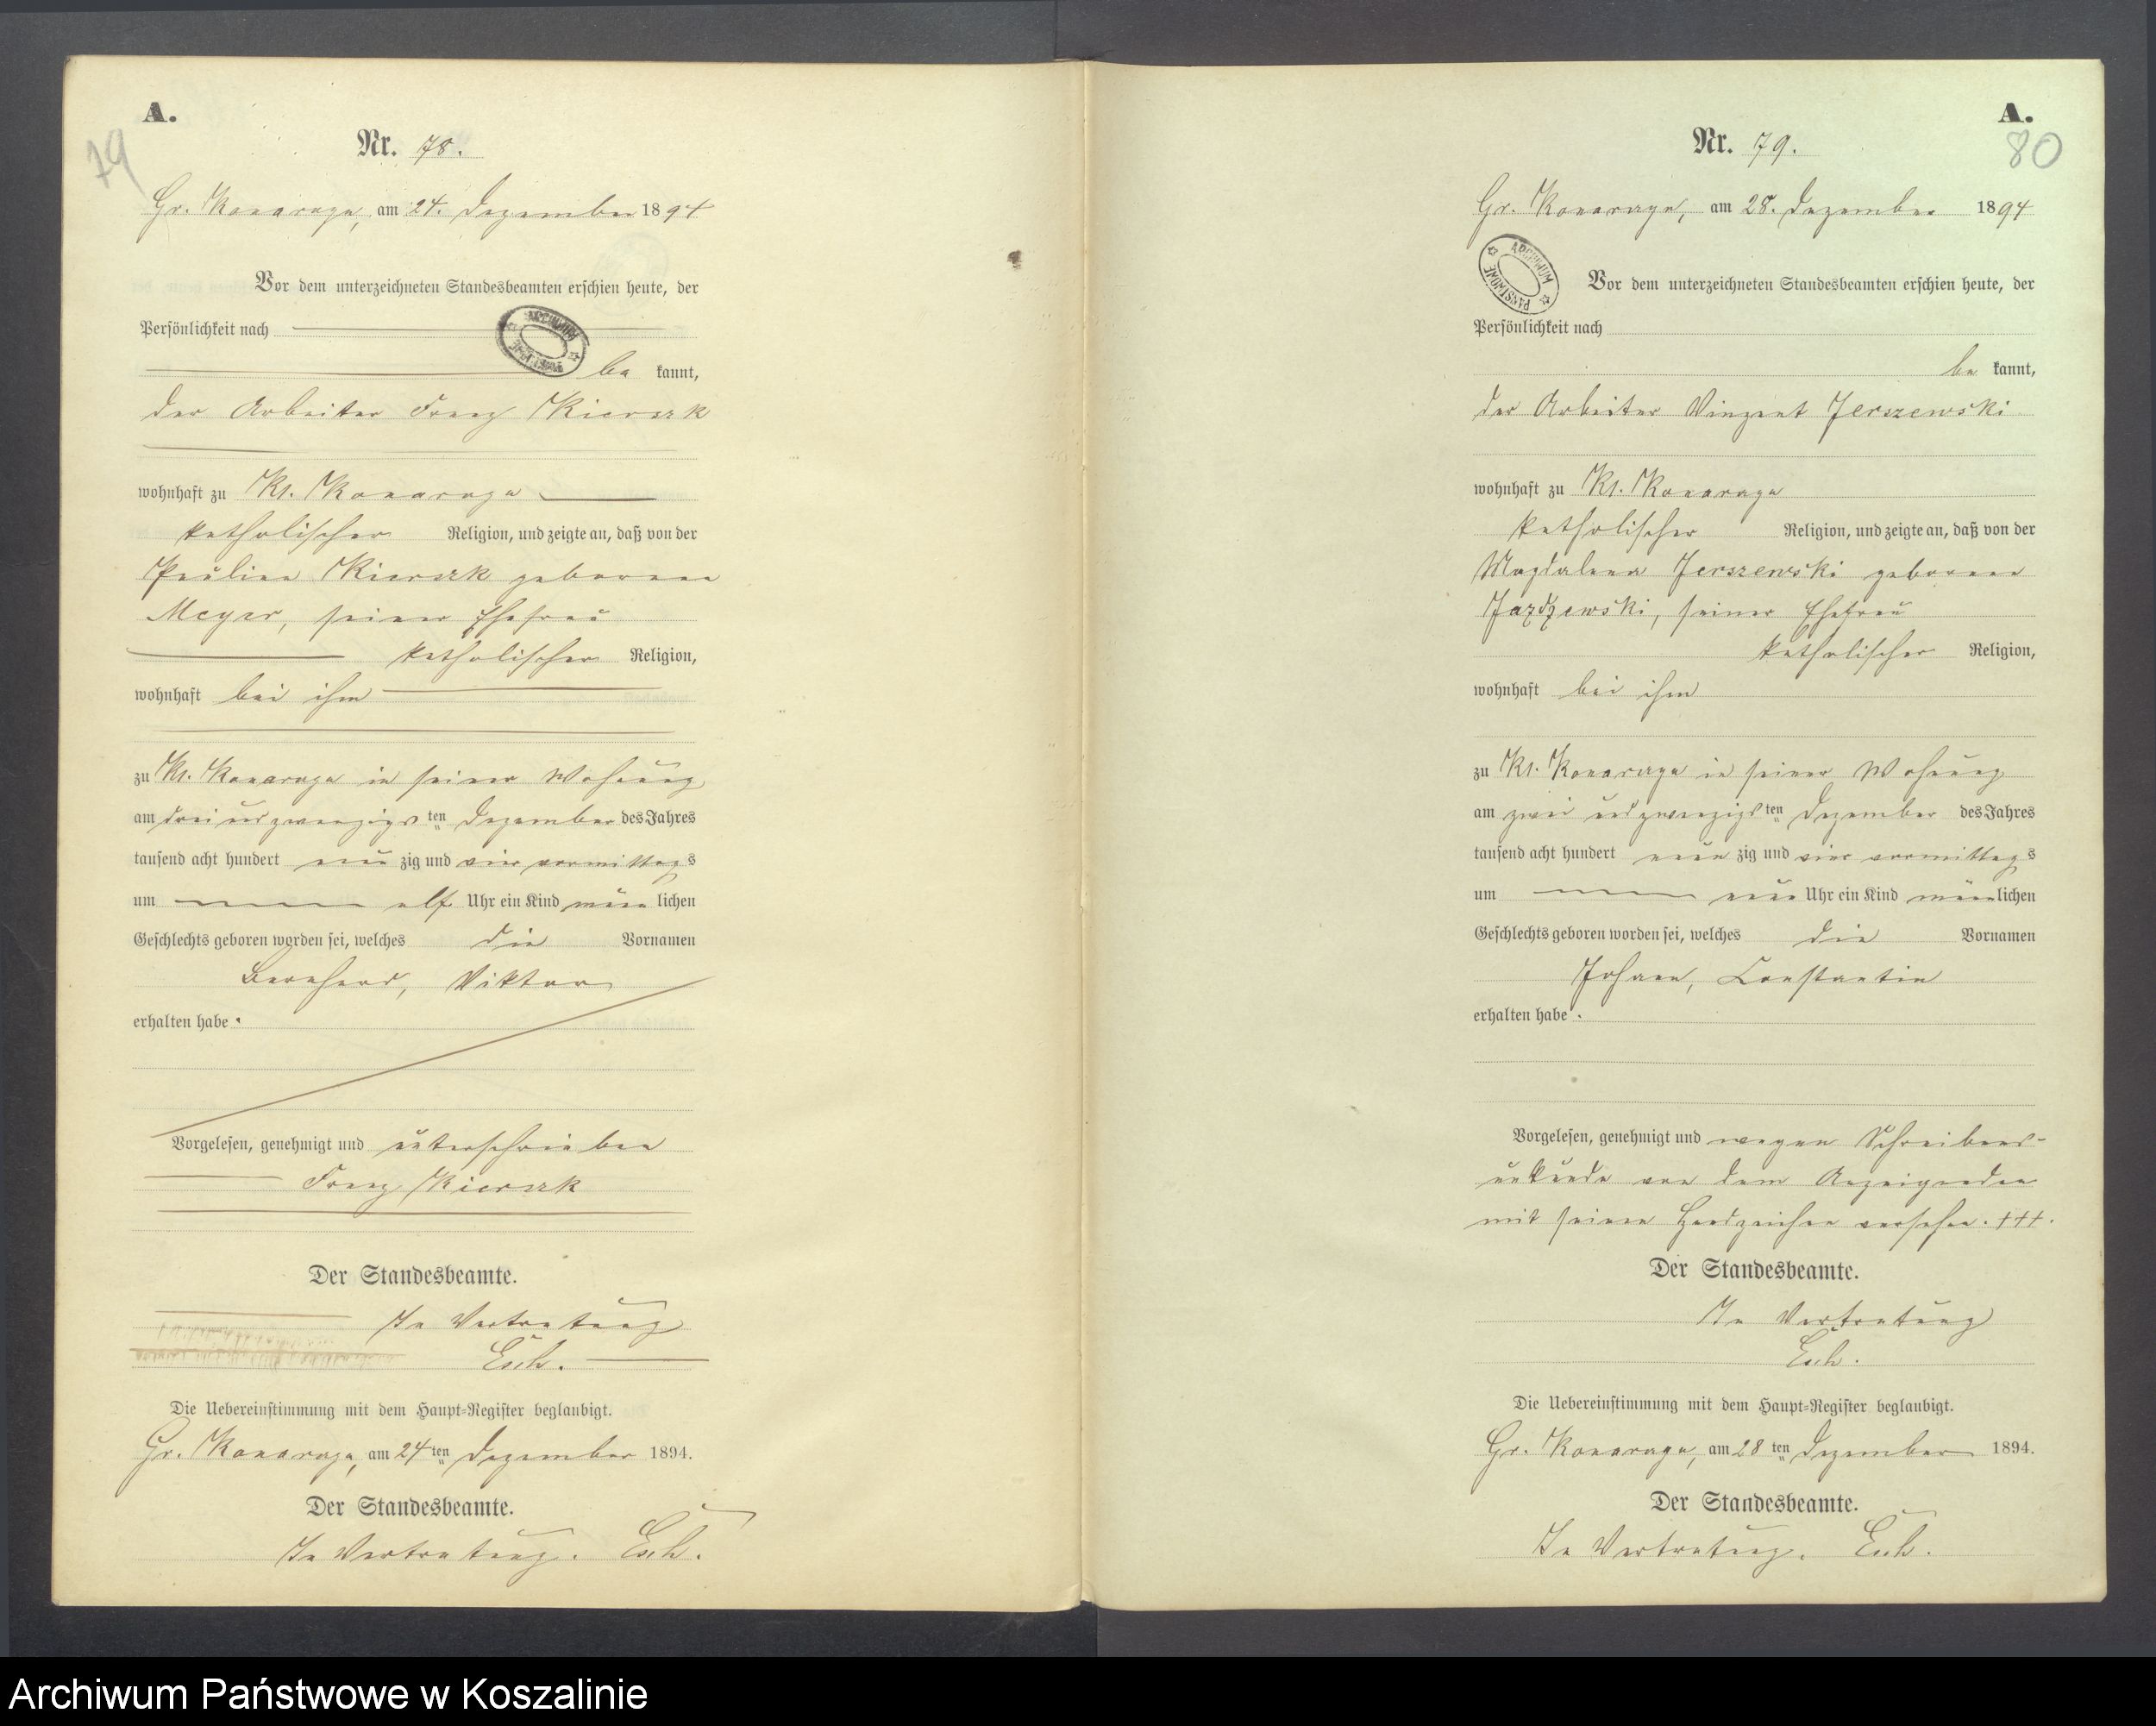 A.
79
Nr. 78.
Gr. Konarzyn, am 24. Dezember 1894
Vor dem unterzeichneten Standesbeamten erschien heute, der
Persönlichkeit nach
be kannt,
der Arbeiter Franz Kierszk
wohnhaft zu Kl. Konarzyn
katholischer Religion, und zeigte an, daß von der
Pauline Kierszk geborene
Meyer, seiner Ehefrau
katholischer Religion,
wohnhaft bei ihm
zu Kl. Konarzyn in seiner Wohnung
am drei und zwanzigs ten Dezember des Jahres
tausend acht hundert neun zig und vier vormittags
um elf Uhr ein Kind männ lichen
Geschlechts geboren worden sei, welches die Vornamen
Bernhard, Viktor
erhalten habe.
Vorgelesen, genehmigt und unterschrieben
Franz Kierszk
Der Standesbeamte.
In Vertretung
Esch.
Die Uebereinstimmung mit dem Haupt-Register beglaubigt.
Gr. Konarzyn, am 24 ten Dezember 1894.
Der Standesbeamte.
In Vertretung. Esch.
A.
80
Nr. 79.
Gr. Konarzyn, am 28. Dezember 1894
ARCHIWUM PAŃSTWOWE
Vor dem unterzeichneten Standesbeamten erschien heute, der
Persönlichkeit nach
be kannt,
der Arbeiter Vinzent Jerszewski
wohnhaft zu Kl. Konarzyn
katholischer Religion, und zeigte an, daß von der
Magdalena Jerszewski geborene
Jazdzewski, seiner Ehefrau
katholischer Religion,
wohnhaft bei ihm
zu Kl. Konarzyn in seiner Wohnung
am zwei und zwanzigs ten Dezember des Jahres
tausend acht hundert neun zig und vier vormittags
um neun Uhr ein Kind männ lichen
Geschlechts geboren worden sei, welches die Vornamen
Johann, Constantin
erhalten habe.
Vorgelesen, genehmigt und wegen Schreibens-
unkunde von dem Anzeigenden
mit seinen Handzeichen versehen. +++.
Der Standesbeamte.
In Vertretung
Esch.
Die Uebereinstimmung mit dem Haupt-Register beglaubigt.
Gr. Konarzyn, am 28 ten Dezember 1894.
Der Standesbeamte.
In Vertretung. Esch.
Archiwum Państwowe w Koszalinie